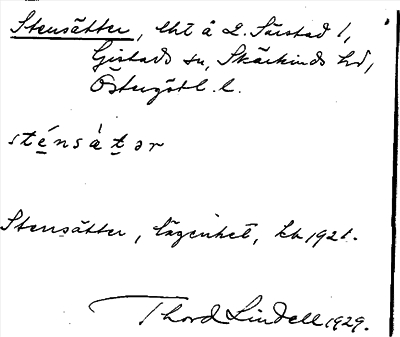 Stensätter, lht å L. Särstad 1,
Gistads sn, Skärkinds hd,
Östergötl. l.
sténsàtər
Stensätter, lägenhet, kb 1921.
Thord Lindell 1929.